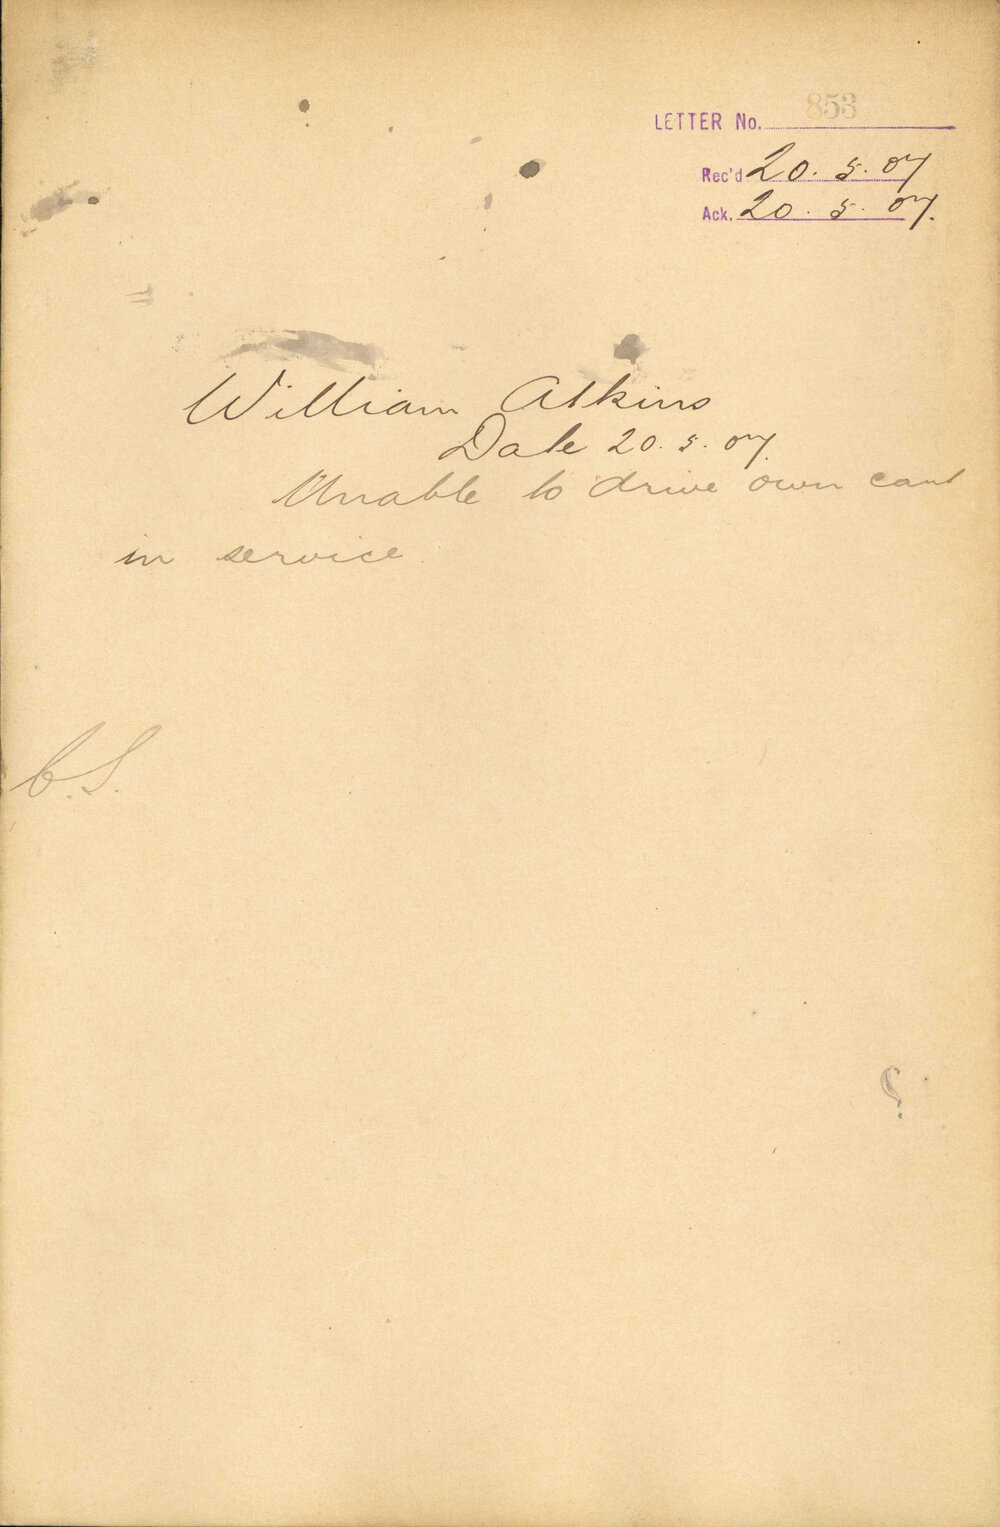 LETTER No. 853
Rec'd 20. 5. 07
Ack. 20. 5. 07.
William Atkins
Date 20. 5. 07.
Unable to drive own cart
in service.
C.S.